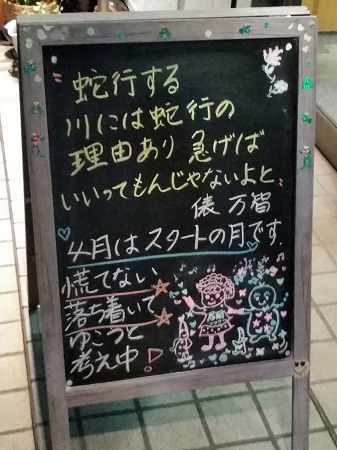 蛇行する
川には蛇行の
理由あり 急げば
いいってもんじゃないよと
俵 万智
4月はスタートの月です
慌てない
落ち着いて
ゆこうと
考え中!